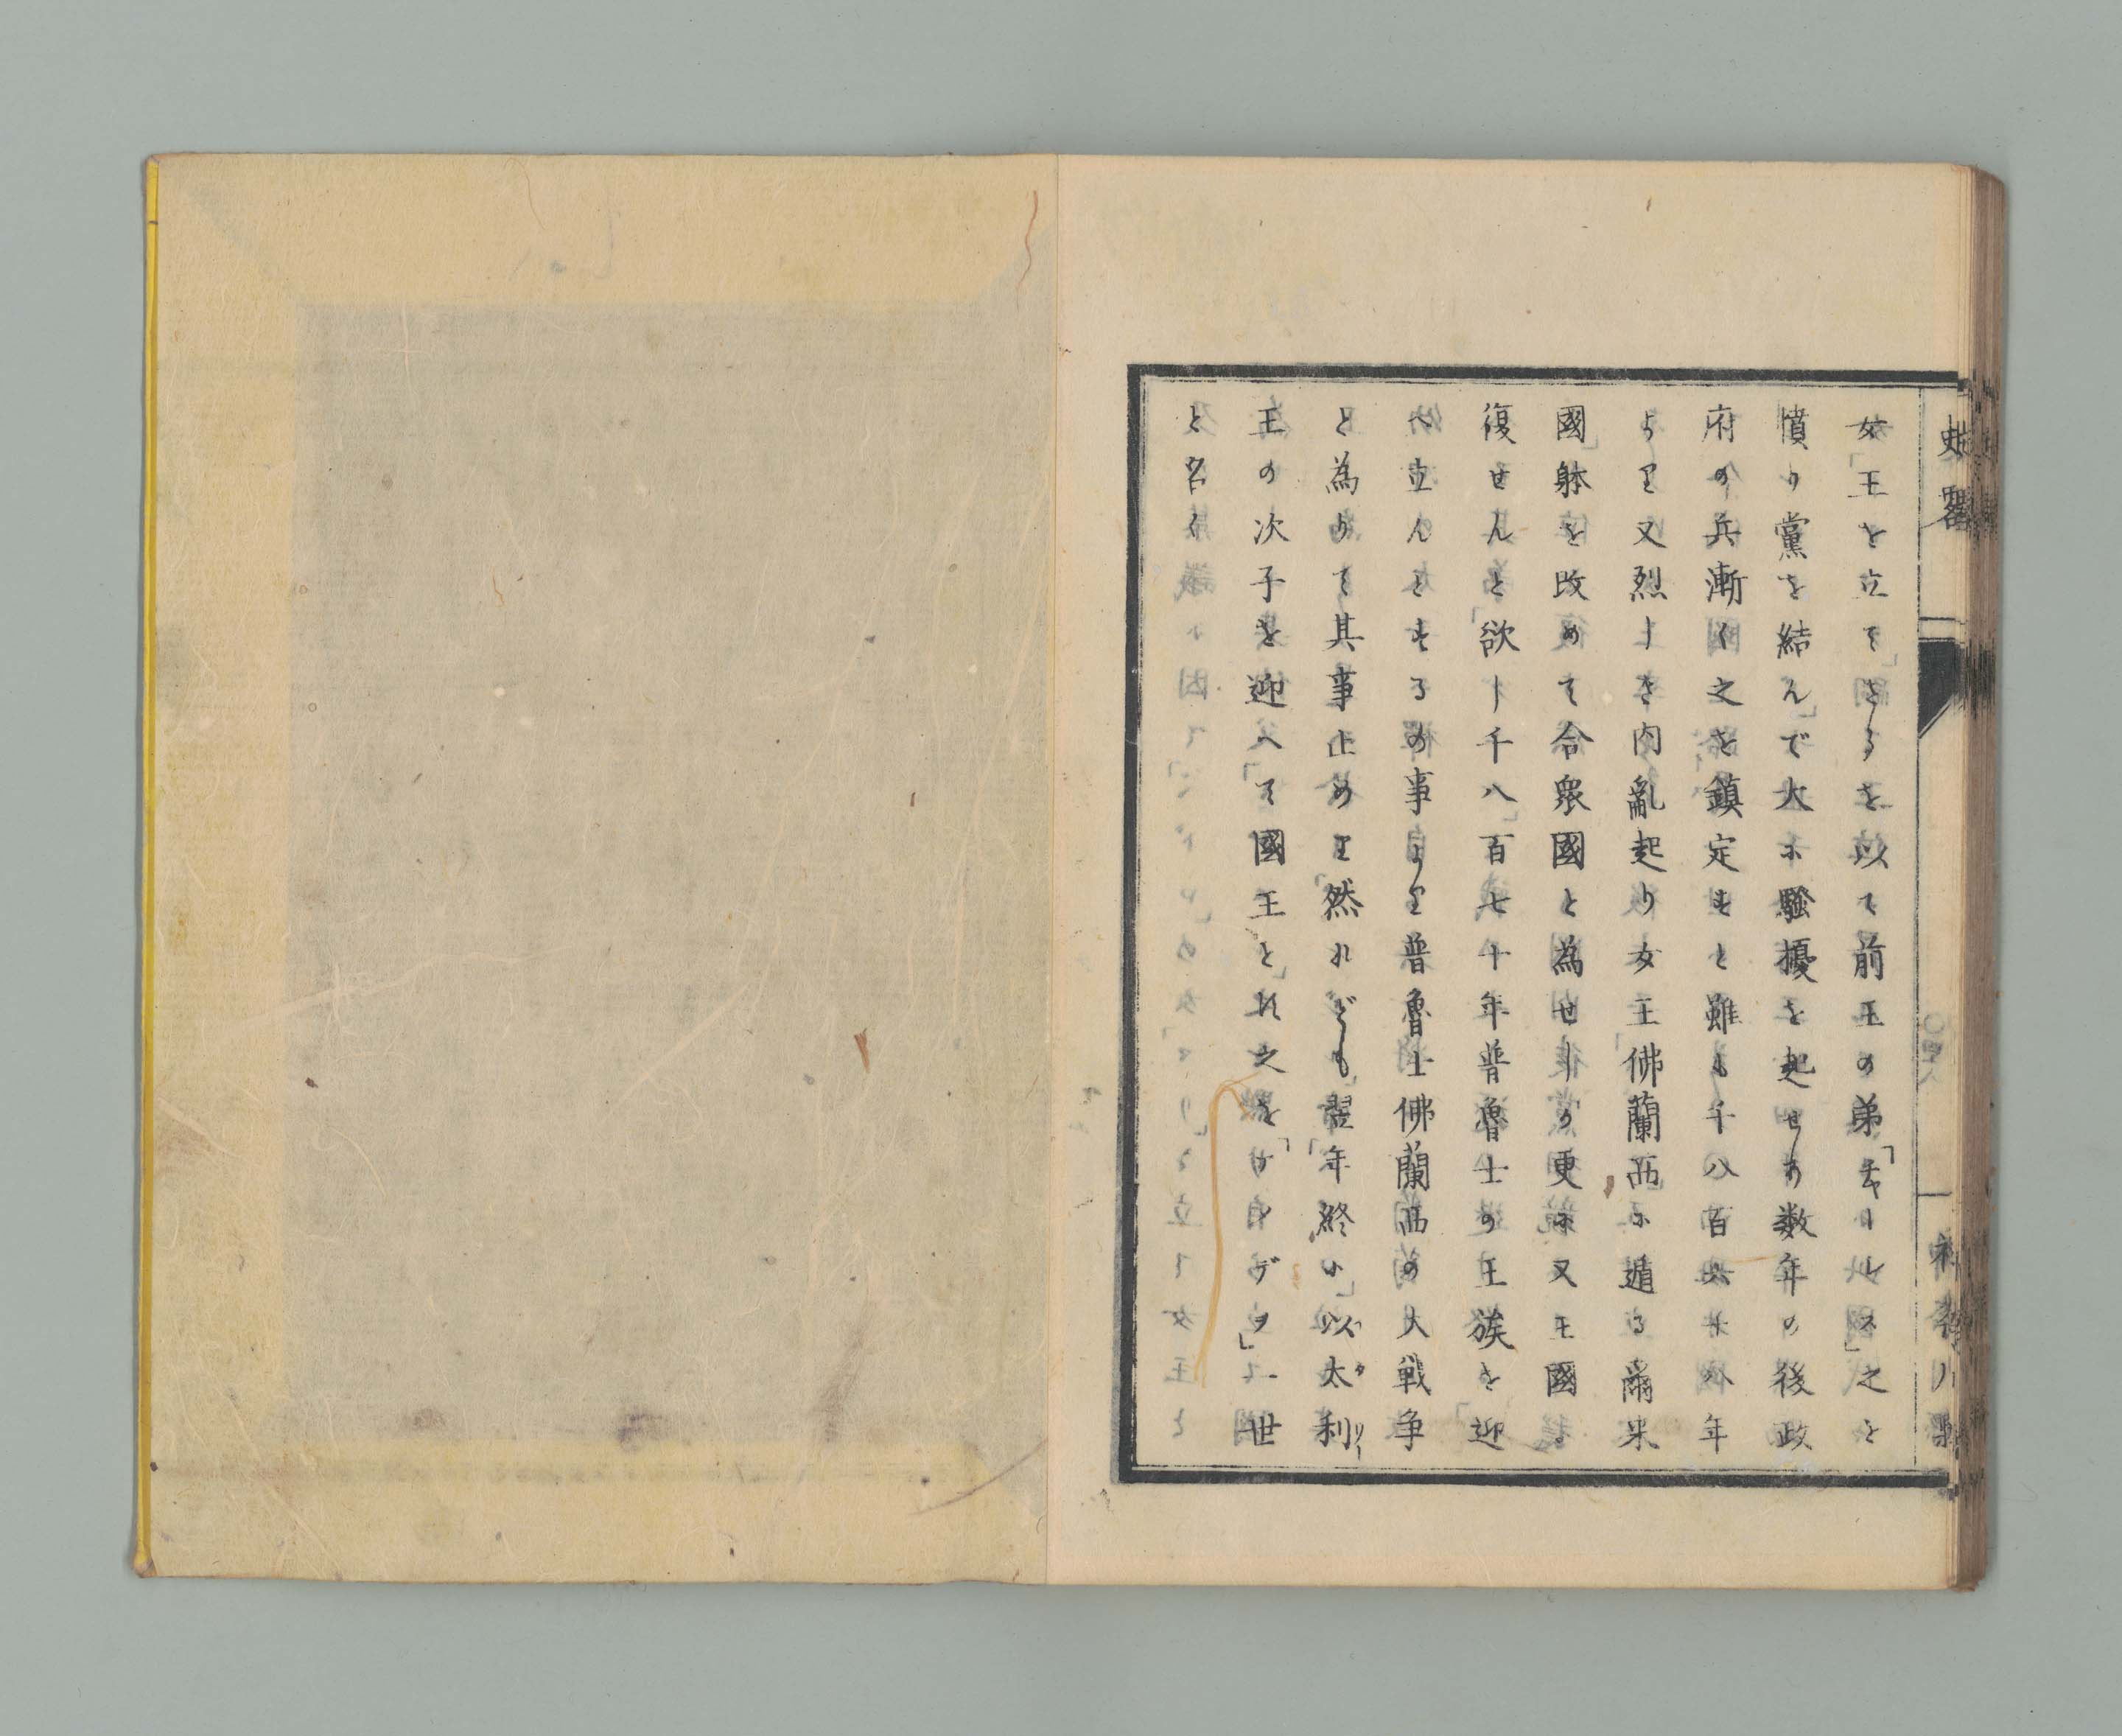 女王を立てたるを以て前王の弟「チヤールレス」之を
憤り黨を結んで大に騒擾を起せしが数年の後政
府の兵漸く之を鎮定すと雖も千八百六十八年
より又烈しき内亂起り女王佛蘭西に遁る爾来
國躰を改めて合衆國と為せしが更に又王國に
復せんと欲し千八百七十年普魯士の王族を迎
へ立んとするの事より普魯士佛蘭西の大戦争
と為りて其事止めり然れども翌年終に以太利
王の次子を迎へて國王とす之を「アマデヲ」一世
と名く
史略